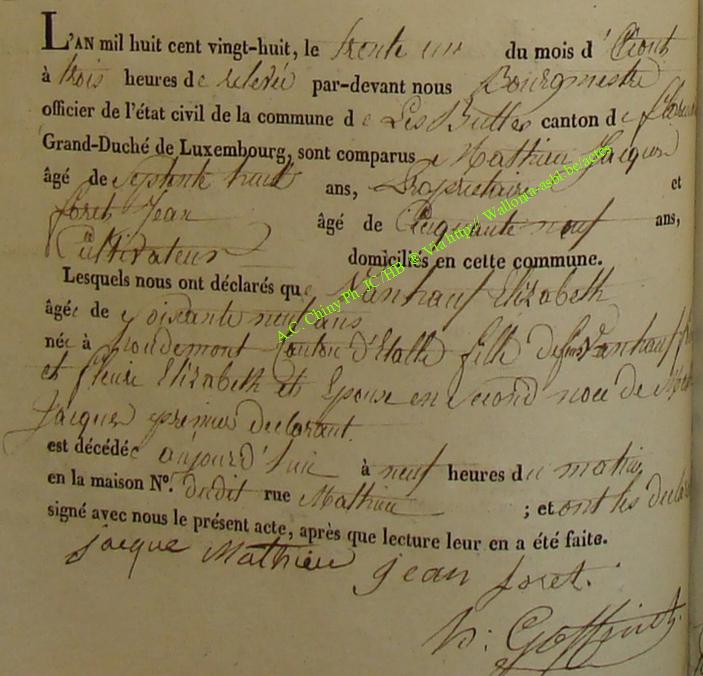 L'AN mil huit cent vingt-huit, le trente un du mois d'Aout
à trois heures de relevée par-devant nous Bourgmestre
officier de l'état civil de la commune de Les Bulles canton de
Grand-Duché de Luxembourg, sont comparus Mathieu Jacques
âgé de septente huit ans, Propriétaire et
foret Jean âgé de Cinquante neuf ans,
Cultivateur domiciliés en cette commune.
Lesquels nous ont déclarés que Vanhauf Elizabeth
âgée de soixante neuf ans
née à Canton d'Etalle fille de Vanhauf
et Elizabeth et Epouse en second noce de
Jacques premier declarant
est décédée aujourd'hui à neuf heures du matin
en la maison N°. dudit rue Mathieu ; et ont les
signé avec nous le présent acte, après que lecture leur en a été faite.
jacque Mathieu jean foret.
h: Goffinet
A.C. Chiny Ph. JC /HB/ & Via http// Wallonia-asbl.be/actes